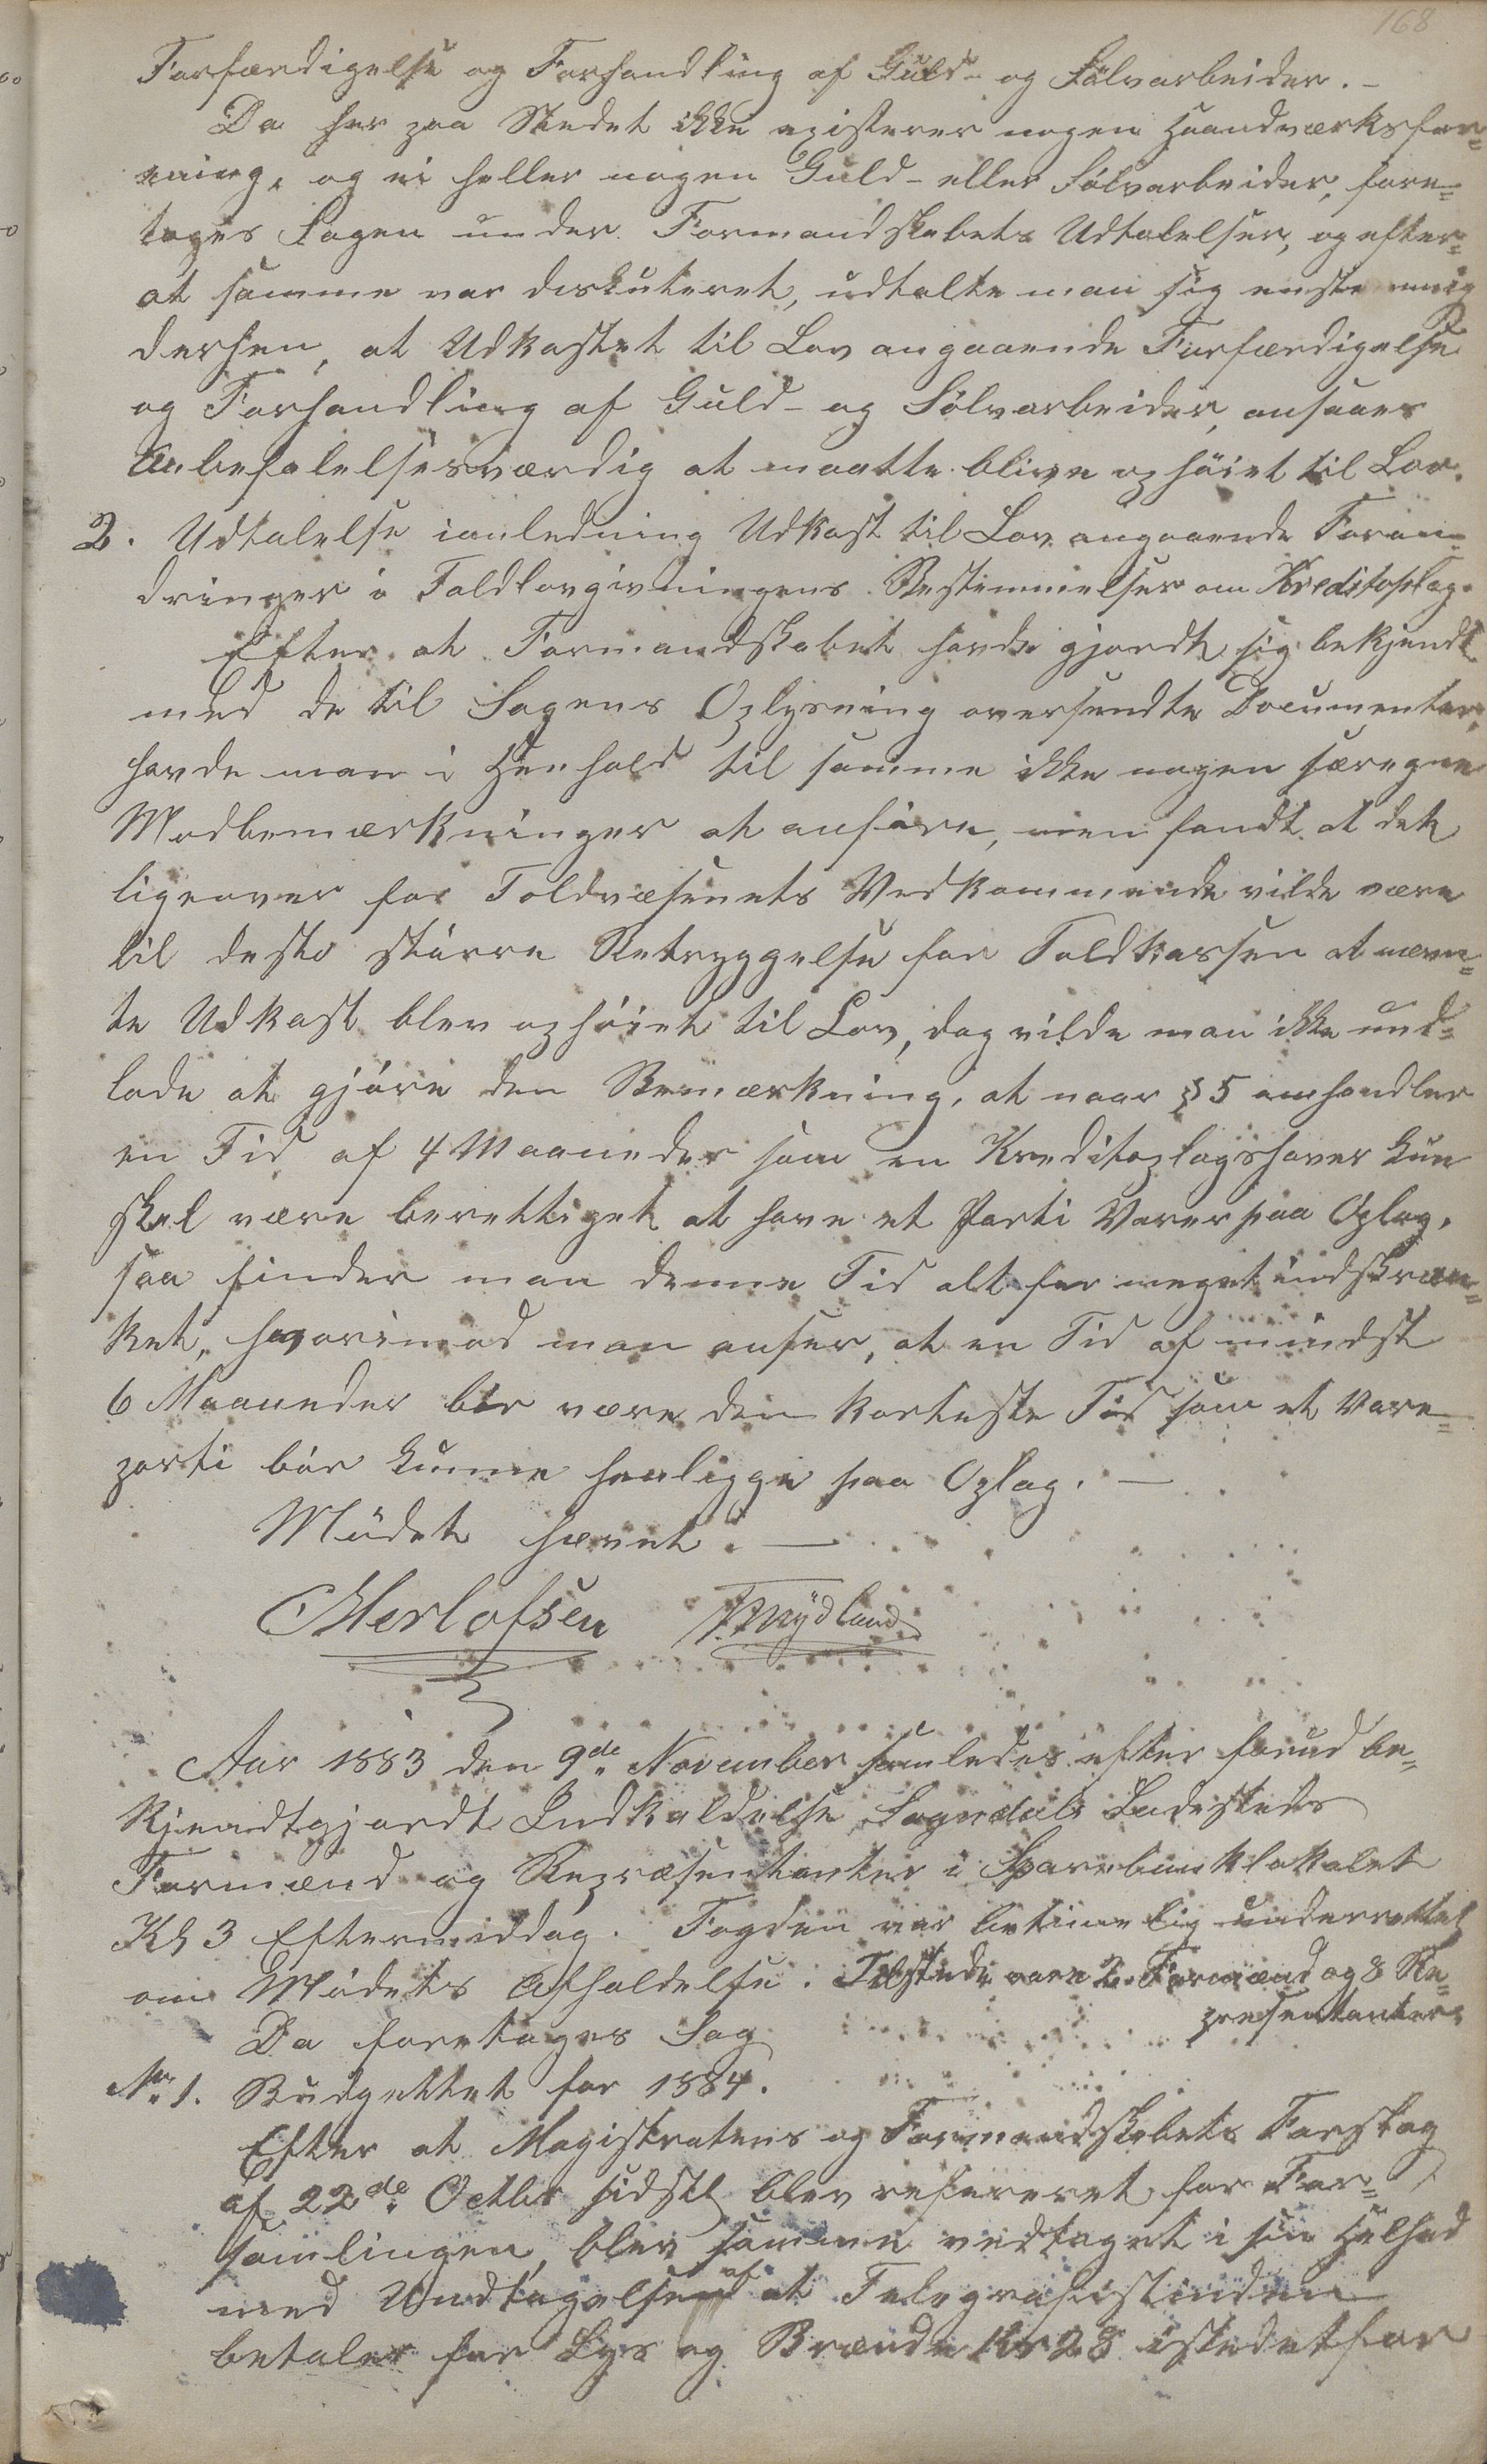 168
Forfærdigelse og Forhandling af Guld- og Sölvarbeider. -
Da her paa Stedet ikke existerer nogen Haandværksfor=
ening, og ei heller nogen Guld- eller Sölvarbeider, fore=
toges Sagen under Formandskabets Udtalelser, og efter=
at samme var diskuteret, udtalte man sig enstemmig
derhen, at Udkastet til Lov angaaende Forfærdigelse
og Forhandling af Guld- og Sölvarbeider, ansaaes
Anbefalelsesværdig at maatte blive ophöiet til Lov.
2. Udtalelse ianledning Udkast til Lov angaaende Foran=
dringer i Toldlovgivningens Bestemmelser om Kreditoplag.
Efter at Formandskabet havde gjordt sig bekjendt
med de til Sagens Oplysning oversendte Documenter,
havde man i Henhold til samme ikke nogen særegne
Modbemærkninger at anföre, men fandt at det
ligeover for Toldvæsenets Vedkommende vilde være
til desto större Betryggelse for Toldkassen at nævn=
te Udkast blev ophöiet til Lov, dog vilde man ikke und=
lade at gjöre den Bemærkning, at naar § 5 omhandler
en Tid af 4 Maaneder som en Kreditoplagshaver kun
skal være berettiget at have et Parti Varer paa Oplag,
saa finder man denne Tid alt for meget indskræn=
ket, hvorimod man anser, at en Tid af mindst
6 Maaneder bör være den korteste Tid som et Vare=
parti bör kunne henligge paa Oplag. —
Mödet hævet. —
C Herlofsen T. Mydland
Aar 1883 den 9de November samledes efter forud be=
kjendtgjordt Indkaldelse Sogndals Ladesteds
Formænd og Repræsentanter i Sparebanklokalet
Kl 3 Eftermiddag. Fogden var betimelig underrettet
om Mödets Afholdelse. Tilstede vare 2 Formænd og 8 Re=
presentanter.
Da foretoges Sag
No 1. Budgettet for 1884.
Efter at Magistratens og Formandskabets Forslag
af 22de Octbr sidstl blev refereret for For=
samlingen, blev samme vedtaget i sin Helhed
med Undtagelse af at Telegrafistinden
betales for Lys og Brænde Kr 28 istedetfor